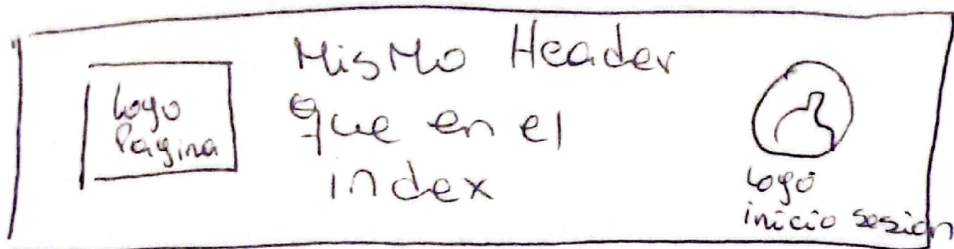 Logo
Pagina
Mismo Header
que en el
index
Logo
inicio sesion